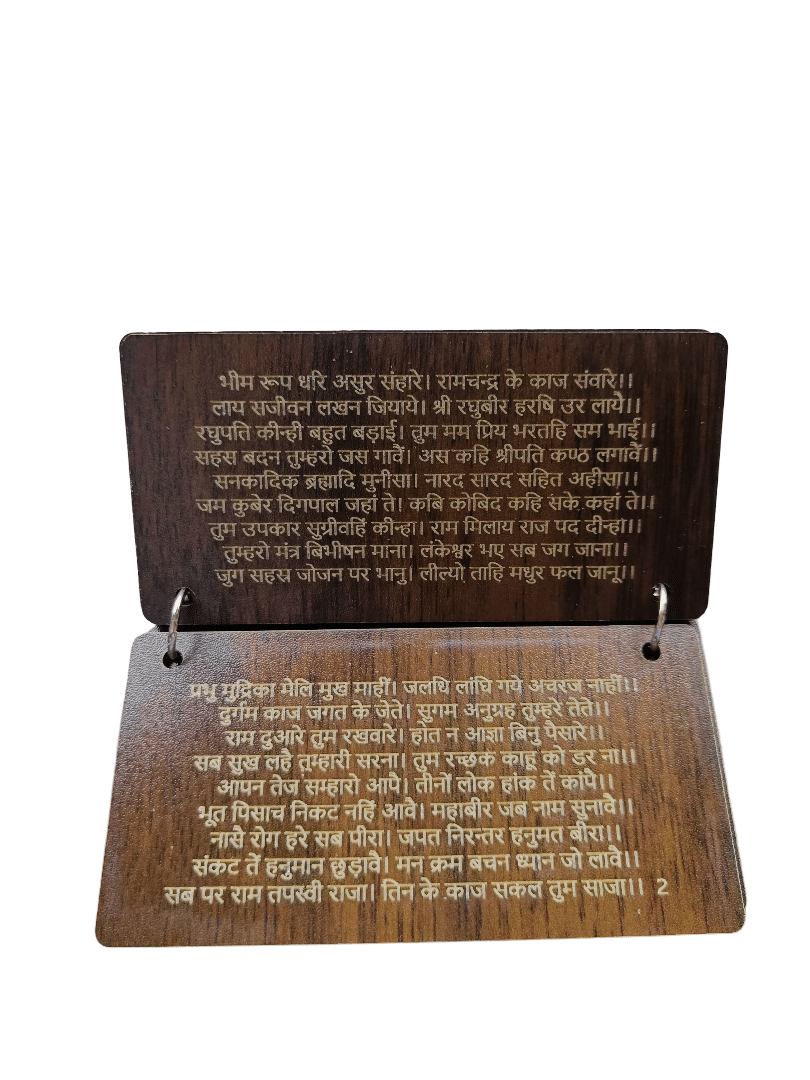 भीम रूप धरि असुर संहारे। रामचन्द्र के काज संवारे।।
लाय सजीवन लखन जियाये। श्री रघुबीर हरषि उर लाये।।
रघुपति कीन्ही बहुत बड़ाई। तुम मम प्रिय भरतहि सम भाई।।
सहस बदन तुम्हरो जस गावैं। अस कहि श्रीपति कण्ठ लगावैं।।
सनकादिक ब्रह्मादि मुनीसा। नारद सारद सहित अहीसा।।
जम कुबेर दिगपाल जहां ते। कबि कोबिद कहि संके कहां ते।।
तुम उपकार सुग्रीवहिं कीन्हा। राम मिलाय राज पद दीन्हा।।
तुम्हरो मंत्र बिभीषन माना। लंकेश्वर भए सब जग जाना।।
जुग सहस्र जोजन पर भानु। लील्यो ताहि मधुर फल जानू।।
प्रभु मुद्रिका मेलि मुख माहीं। जलधि लांघि गये अचरज नाहीं।।
दुर्गम काज जगत के जेते। सुगम अनुग्रह तुम्हरे तेते।।
राम दुआरे तुम रखवारे। होत न आज्ञा बिनु पैसारे।।
सब सुख लहै तुम्हारी सरना। तुम रच्छक काहू को डर ना।।
आपन तेज सम्हारो आपै। तीनों लोक हांक तें कांपै।।
भूत पिसाच निकट नहिं आवै। महाबीर जब नाम सुनावै।।
नासै रोग हरे सब पीरा। जपत निरन्तर हनुमत बीरा।।
संकट तें हनुमान छुड़ावै। मन क्रम बचन ध्यान जो लावै।।
सब पर राम तपस्वी राजा। तिन के काज सकल तुम साजा।। 2